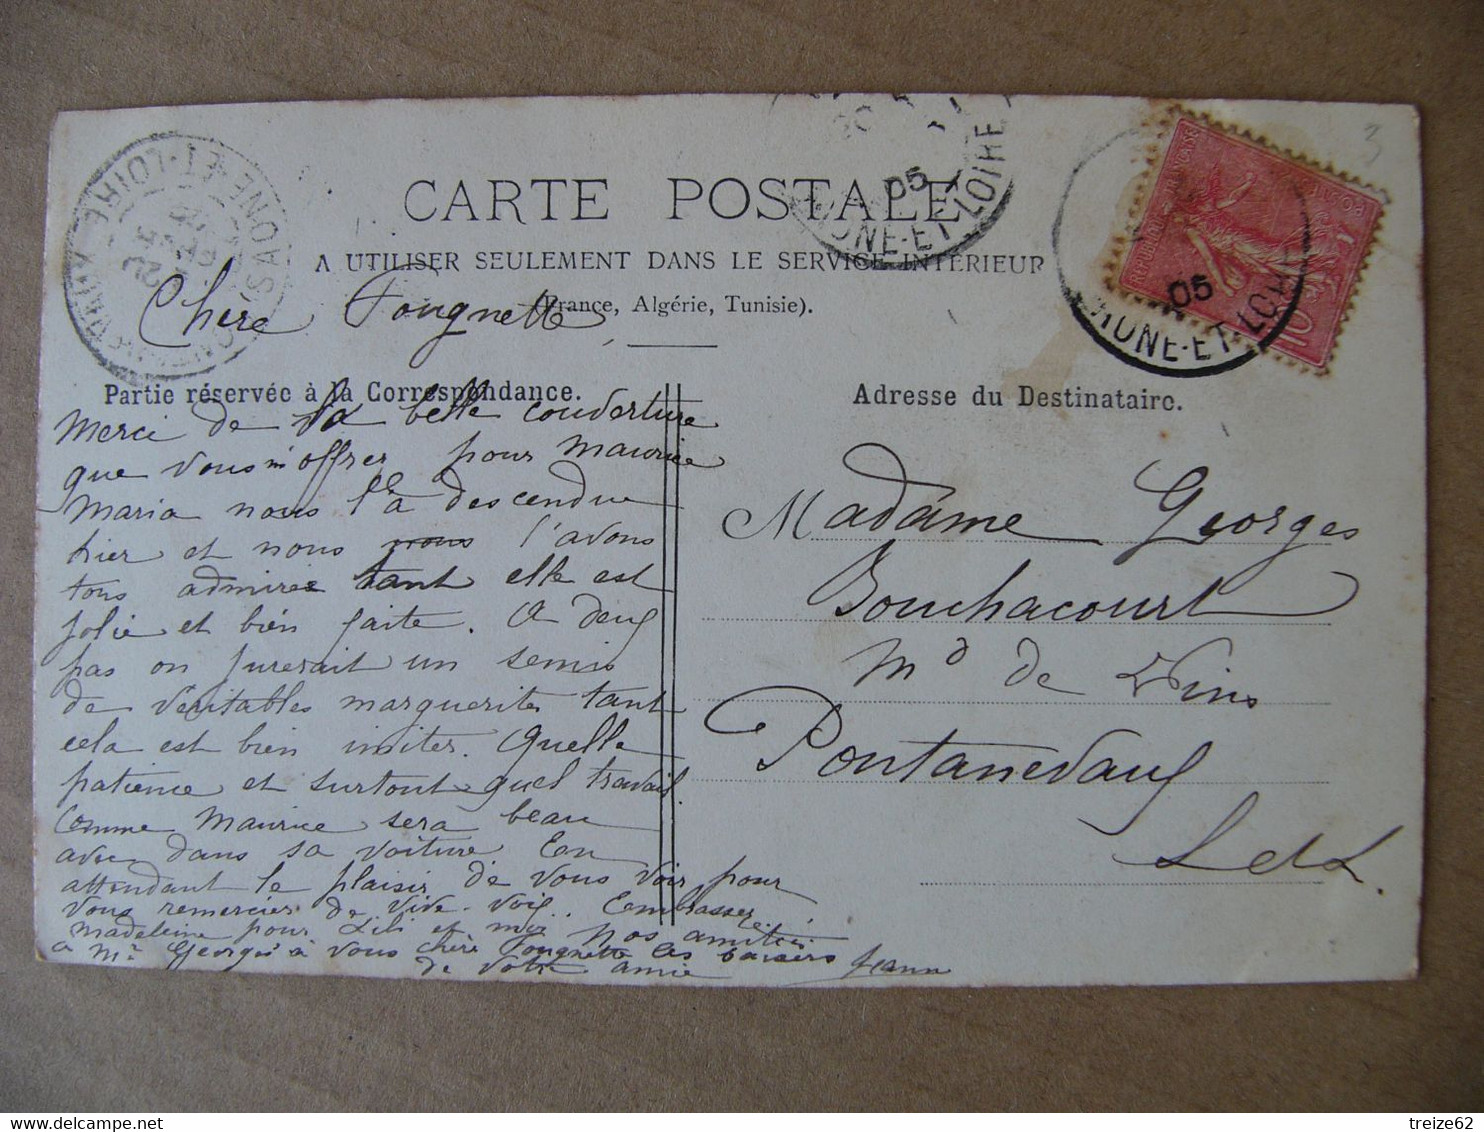 CARTE POSTALE
A UTILISER SEULEMENT DANS LE SERVICE INTÉRIEUR
(France, Algérie, Tunisie).
Chere Fougnette
Partie réservée à la Correspondance.
Merci de la belle couverture
que vous m'offrez pour Maurice
Maria nous l'à descendue
hier et nous nous l'avons
tous admiree tant elle est
jolie et bien faite. A deux
pas on jurerait un semis
de véritables marguerites tant
cela est bien imiter. Quelle
patience et surtout quel travail.
Comme Maurice sera beau
avec dans sa voiture En
attendant le plaisir de vous voir pour
vous remercier de vive-voix. Embrassez
Madeleine pour Lili et moi Nos amitiés
a Mr Georges à vous chère Fougnette les baisers
de votre amie Jeanne
SAONE-ET-LOIRE
05
SAONE-ET-LOIRE
RÉPUBLIQUE FRANÇAISE
POSTES
10
05
SAONE-ET-LOIRE
3
Adresse du Destinataire.
Madame Georges
Bouchacourt
Md de Vins
Pontanevaux
S et L.
treize62